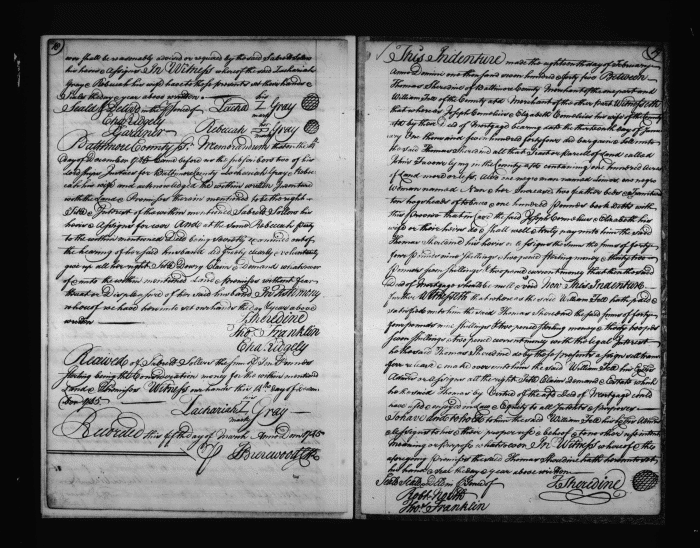 ever shall be reasonably advised or required by the said Sabrett Sollers
his heirs & Assigns In Witness whereof the said Zachariah
Gray & Rebeccah his wife have to these presents set their hands &
Seals the day & year above written
Seal'd & Deliver'd in the presence of Zacha his Z mark Gray
Cha Ridgely
Rebeccah her mark Gray
Baltimore County ss. Memorandum that on the 14th
day of December 1745 Came before us the subscribers two of his
Lordships Justices for Baltimore County Zachariah Gray & Rebec
cah his wife and acknowledged the within written Indenture
with the Land & Premises therein mentioned to be the right
Title & Interest of the within mentioned Sabrett Sollers his
heirs & Assigns for ever And at the same Rebeccah party
to the within mentioned Deed being Secretly examined out of
the hearing of her said husband did freely & voluntarily
give up all her right Title Dowry Claim & Demand whatsoever
of & unto the within mentioned Land & Premises without fear
threat or displeasure of her said husband In Testimony
whereof we have hereunto set our hands the day & year above
written
T Sheredine
Tho. Franklin
Cha Ridgely
Received of Sabrett Sollers the sum of Pounds
Sterling being the Consideration money for the within mentioned
Land & Premises Witness our hands this 14th day of Decem
ber 1745
Zachariah his mark Gray
Recorded this day of March Anno Dom 1745
This Indenture made the eighteenth day of February
Anno Domini one thousand seven hundred & forty five Between
Thomas Sheredine of Baltimore County Merchant of the one part and
William Fell of the County afd Merchant of the other part Witnesseth
that whereas Joseph & Elizabeth his wife of the County
afd by their Deed of Mortgage bearing date the thirteenth day of
One thousand seven hundred forty four did bargain & sell unto
the said Thomas Sheredine all that Tract or parcell of Land called
lying in the County afd containing one hundred acres
of Land more or less Also one negro man named one negro
Woman named Nan & her Increase two feather beds & furniture
ten hogsheads of tobacco & one hundred pounds book debts with
this Proviso that in case the said Joseph & Elizabeth his
wife or their heirs do & shall well & truly pay unto him the said
Thomas Sheredine his heirs or assigns the sum of forty
four pounds nine shillings & two pence sterling money & thirty two
pounds four shillings & two pence current money that then the said
Deed of Mortgage should be null & void Now This Indenture
further Witnesseth that whereas the said William Fell hath paid &
satisfied unto him the said Thomas Sheredine the said sums of forty
four pounds nine shillings & two pence sterling money & thirty two pounds
four shillings & two pence current money with the legal Interest
he the said Thomas Sheredine do by these presents assign sell trans
fer release & make over unto him the said William Fell his heirs
Admrs or assigns all the right Title Claim demand & Estate which
he the said Thomas by Virtue of the afd Deed of Mortgage could
have used or enjoyed in Law or Equity to all intents & purposes
To have and to hold to him the said William Fell his heirs Admrs
& Assigns to his & their proper use & behoof & to no other use intent
meaning or purpose whatsoever In Witness whereof to the
aforegoing Premises the said Thomas Sheredine hath hereunto set
his hand & Seal the day & year above written
Seal'd and deliver'd in presence of T Sheredine
Tho. Franklin